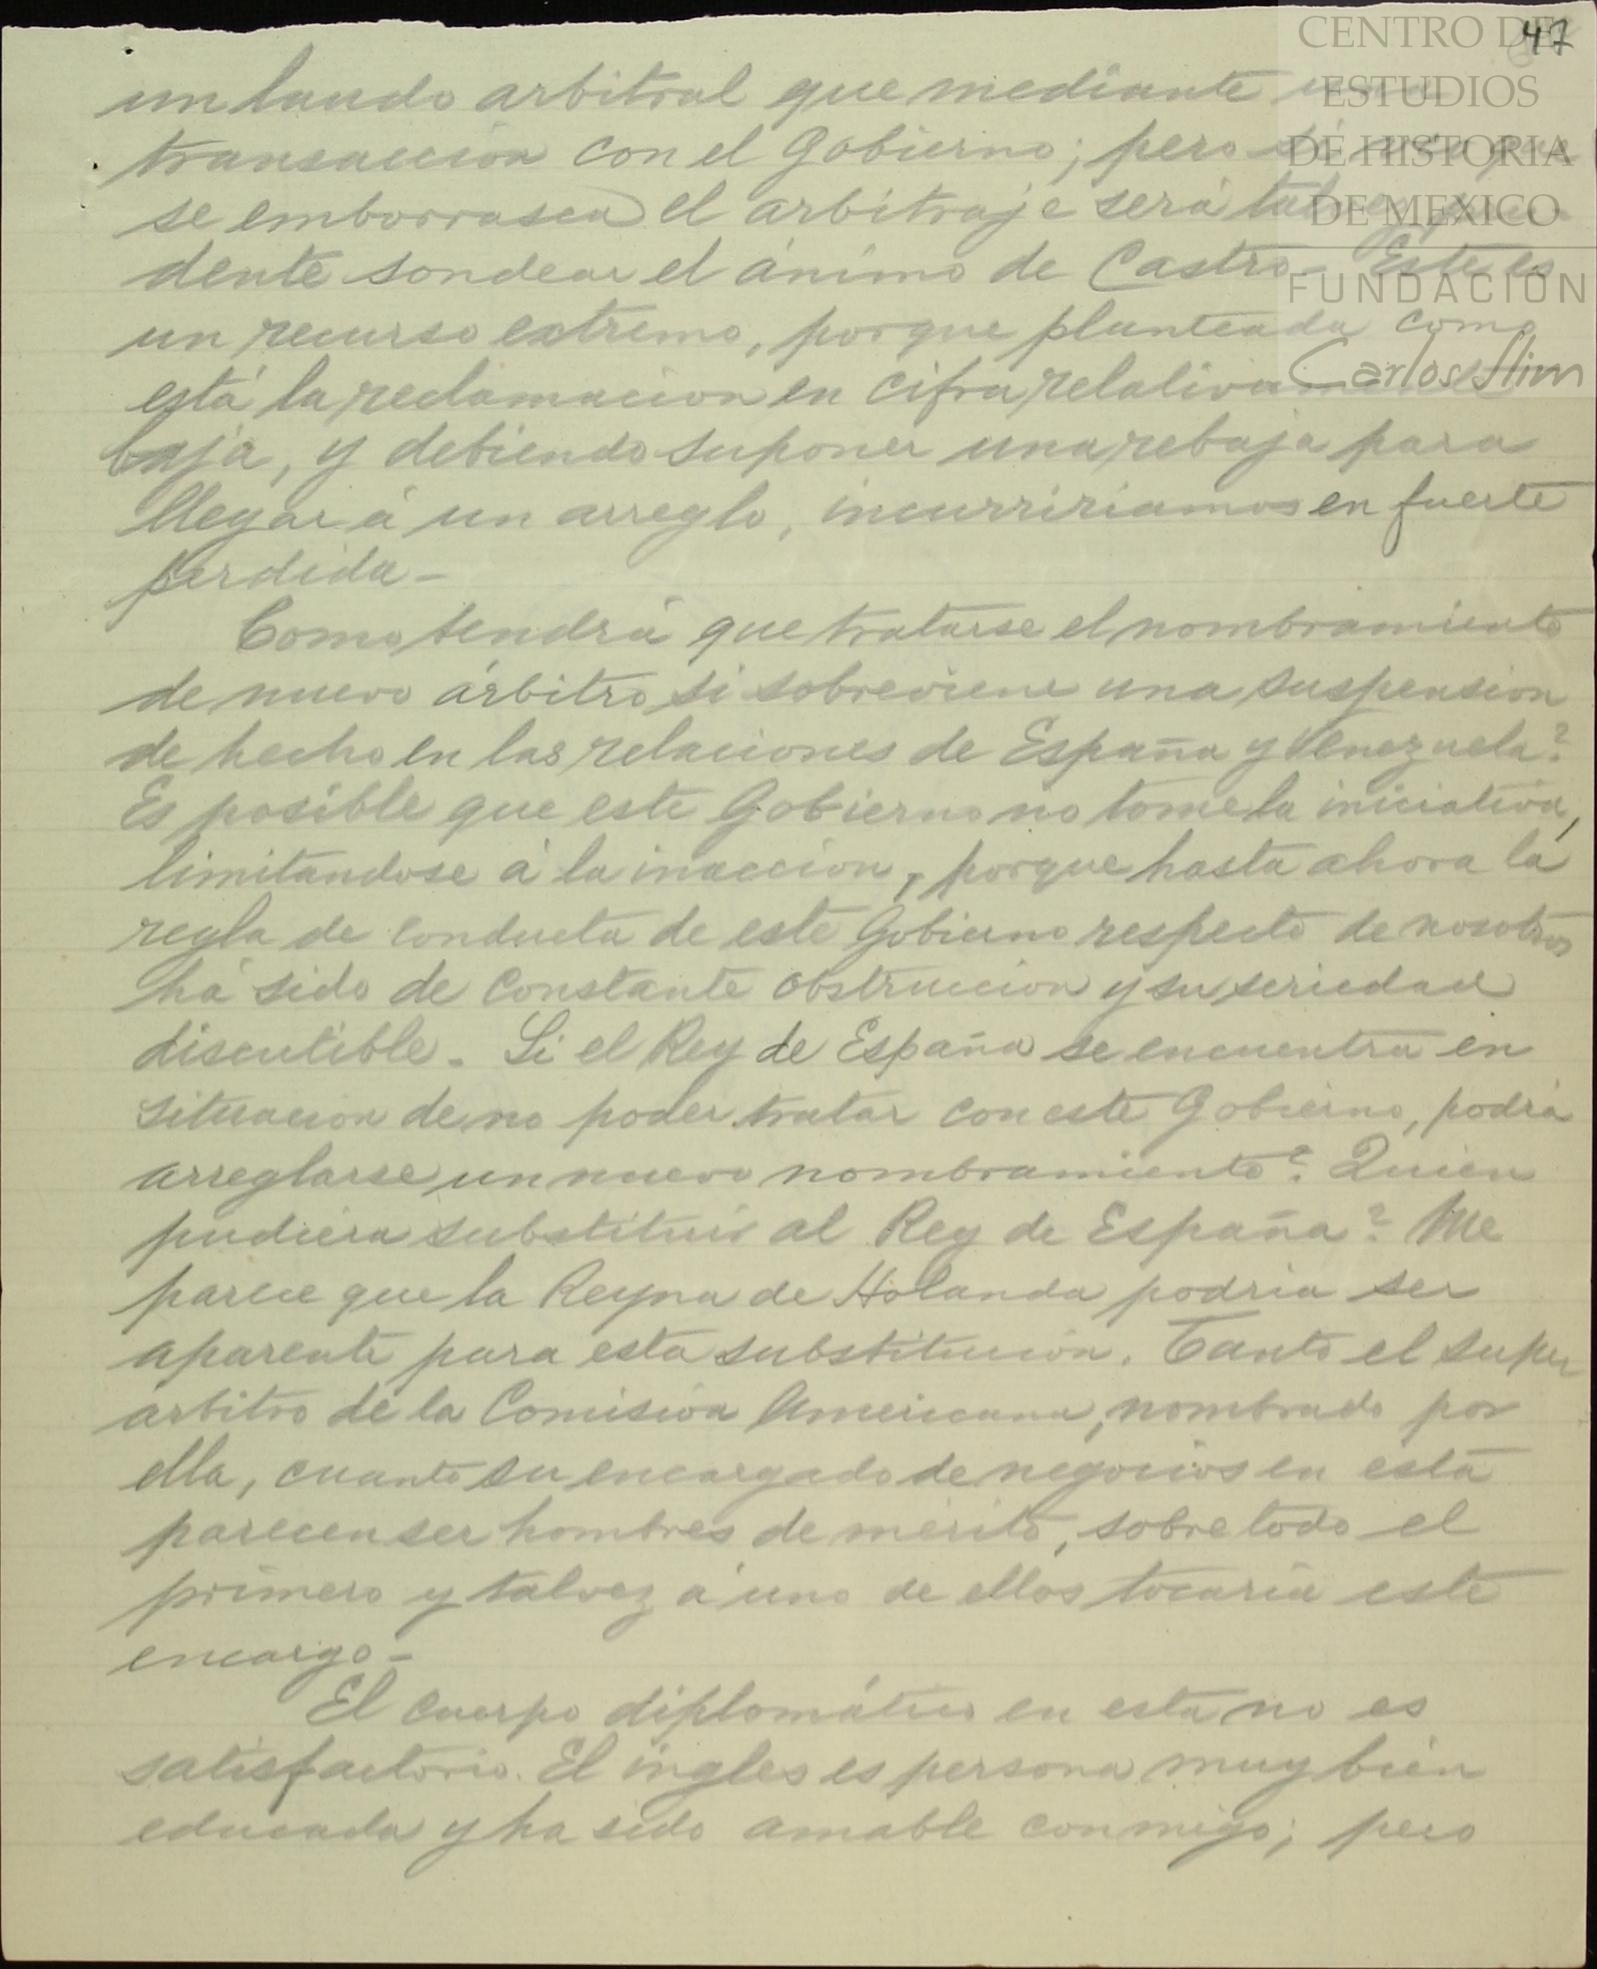 47
CENTRO DE
ESTUDIOS
DE HISTORIA
DE MEXICO
FUNDACIÓN
Carlos Slim
un laudo arbitral que mediante una
transaccion con el Gobierno; pero si
se emborrasca el arbitraje será talvez pru
dente sondear el ánimo de Castro. Este es
un recurso extremo, porque planteada como
está la reclamacion en cifra relativamente
baja, y debiendo suponer una rebaja para
llegar á un arreglo, incurririamos en fuerte
perdida -
Como tendrá que tratarse el nombramiento
de nuevo árbitro si sobreviene una suspension
de hecho en las relaciones de España y Venezuela?
Es posible que este Gobierno no tome la iniciativa,
limitandose á la inaccion, porque hasta ahora la
regla de conducta de este Gobierno respecto de nosotros
há sido de constante obstruccion y su seriedad
discutible. Si el Rey de España se encuentra en
situacion de no poder tratar con este Gobierno, podrá
arreglarse un nuevo nombramiento? Quien
pudiera substituir al Rey de España? Me
parece que la Reyna de Holanda podria ser
aparente para esta substitucion. Tanto el super
arbitro de la Comision Americana, nombrado por
ella, cuanto su encargado de negocios en esta
parecen ser hombres de merito, sobre todo el
primero y talvez á uno de ellos tocaria este
encargo -
El cuerpo diplomático en esta no es
satisfactorio. El ingles es persona muy bien
educada y ha sido amable conmigo; pero